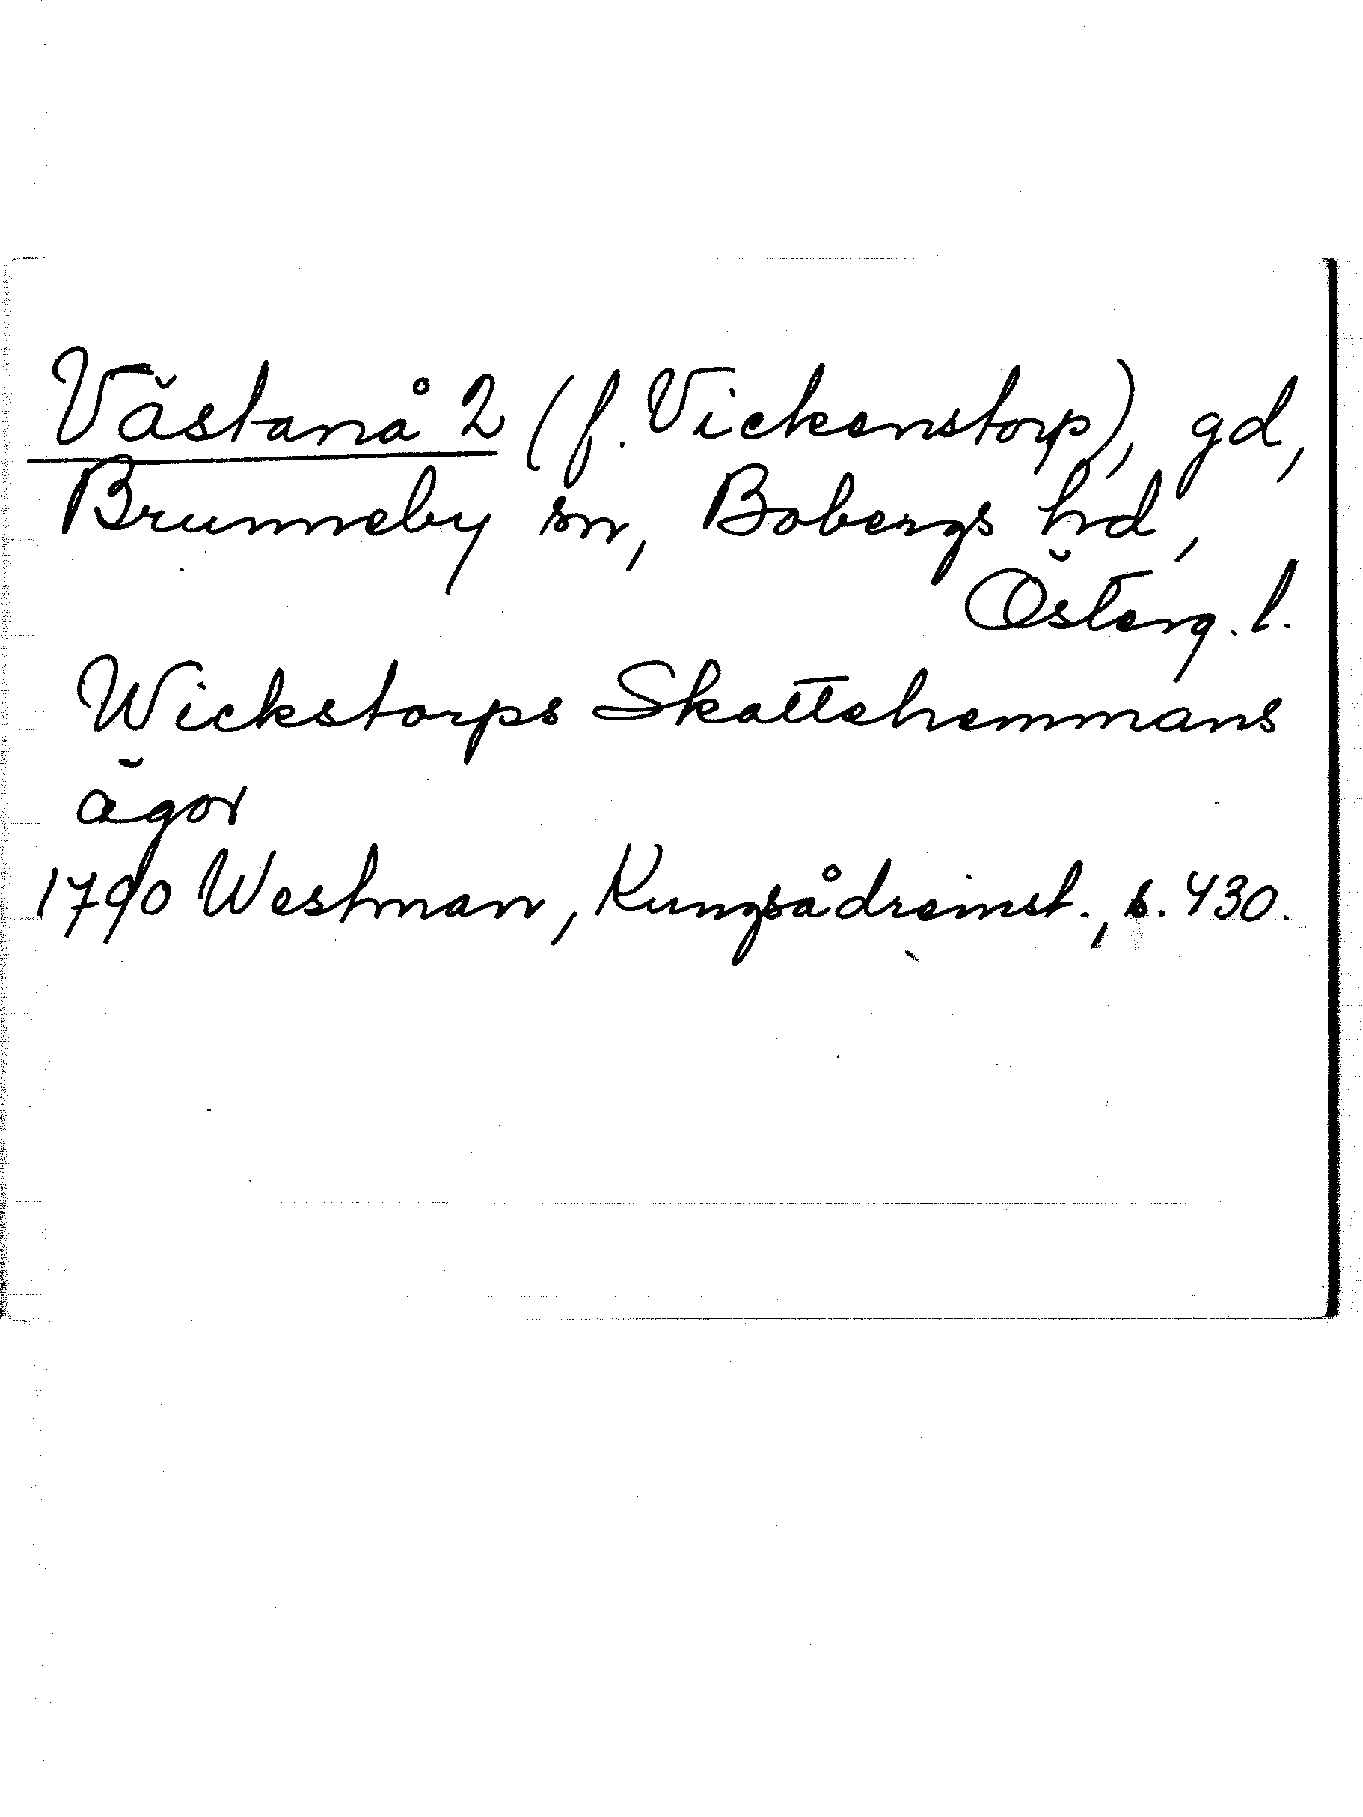 Västanå 2 (f. Vickenstorp), gd,
Brunneby sn, Bobergs hd,
Österg. l.
Wickstorps Skattehemmans
ägor
1790 Westman, Kungsådreinst., s. 430.